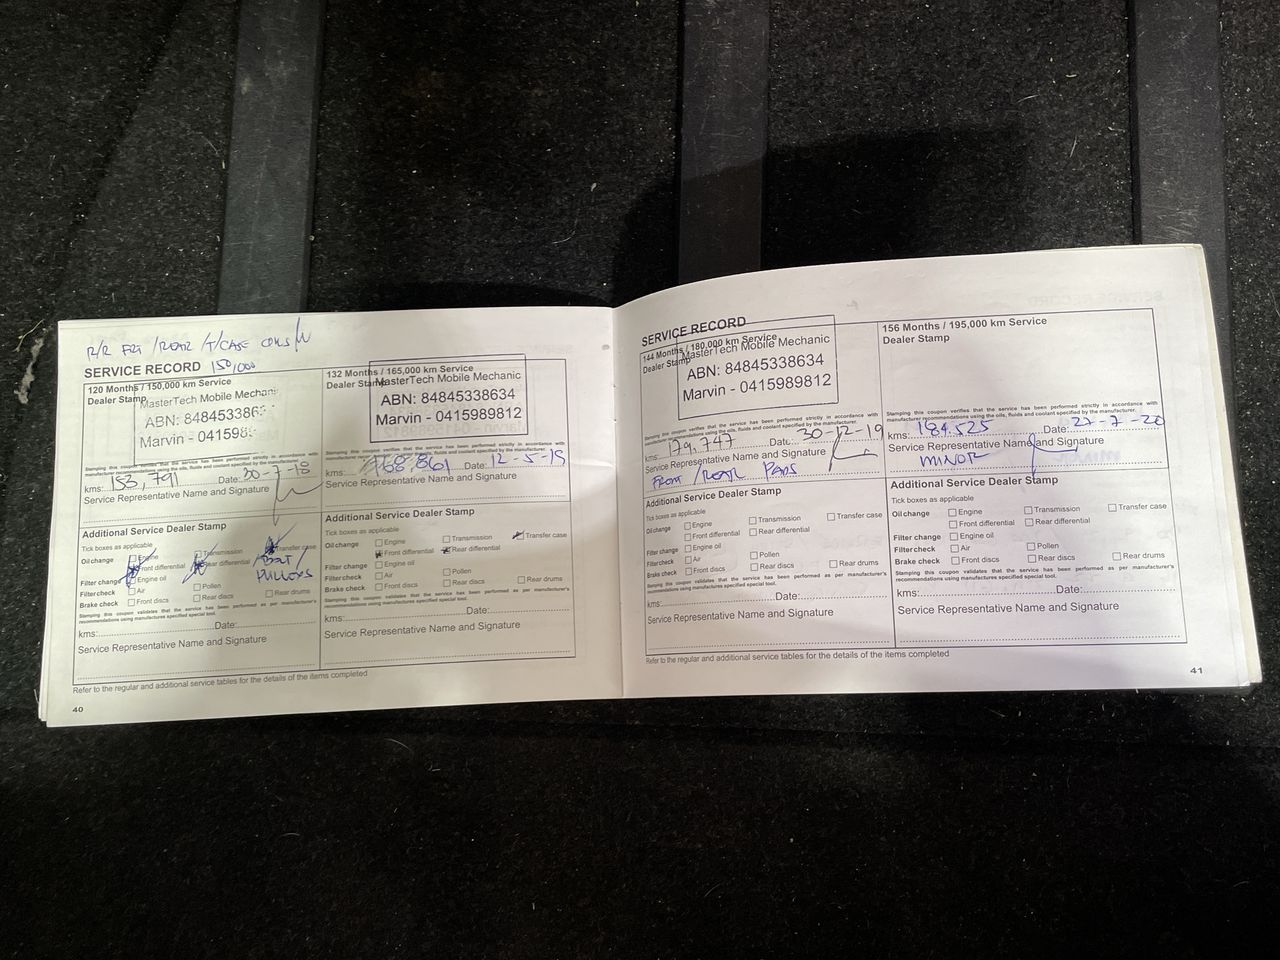 SERVICE RECORD 150,000
120 Months / 150,000 km Service
Dealer Stamp
MasterTech Mobile Mechanic
ABN: 848453386
Marvin - 041598
Stamping this coupon verifies that the service has been performed strictly in accordance with
manufacturer recommendations using the oils, fluids and coolant specified by the manufacturer.
kms: 153,791 Date: 20-7-18
Service Representative Name and Signature
Additional Service Dealer Stamp
Tick boxes as applicable
Oil change Engine Transmission Transfer case
Front differential Rear differential
Filter change Engine oil
Filter check Air Pollen
Brake check Front discs Rear discs Rear drums
Stamping this coupon validates that the service has been performed as per manufacturer's
recommendations using manufactures specified special tool.
kms: Date:
Service Representative Name and Signature
132 Months / 165,000 km Service
Dealer Stamp
MasterTech Mobile Mechanic
ABN: 84845338634
Marvin - 0415989812
Stamping this coupon verifies that the service has been performed strictly in accordance with
manufacturer recommendations using the oils, fluids and coolant specified by the manufacturer.
kms: 168,861 Date: 12-5-19
Service Representative Name and Signature
Additional Service Dealer Stamp
Tick boxes as applicable
Oil change Engine Transmission Transfer case
Front differential Rear differential
Filter change Engine oil
Filter check Air Pollen
Brake check Front discs Rear discs Rear drums
Stamping this coupon validates that the service has been performed as per manufacturer's
recommendations using manufactures specified special tool.
kms: Date:
Service Representative Name and Signature
Refer to the regular and additional service tables for the details of the items completed
40
SERVICE RECORD
144 Months / 180,000 km Service
Dealer Stamp
MasterTech Mobile Mechanic
ABN: 84845338634
Marvin - 0415989812
Stamping this coupon verifies that the service has been performed strictly in accordance with
manufacturer recommendations using the oils, fluids and coolant specified by the manufacturer.
kms: 179,747 Date: 30-12-19
Service Representative Name and Signature
FRONT / REAR PADS
Additional Service Dealer Stamp
Tick boxes as applicable
Oil change Engine Transmission Transfer case
Front differential Rear differential
Filter change Engine oil
Filter check Air Pollen
Brake check Front discs Rear discs Rear drums
Stamping this coupon validates that the service has been performed as per manufacturer's
recommendations using manufactures specified special tool.
kms: Date:
Service Representative Name and Signature
156 Months / 195,000 km Service
Dealer Stamp
Stamping this coupon verifies that the service has been performed strictly in accordance with
manufacturer recommendations using the oils, fluids and coolant specified by the manufacturer.
kms: 184,525 Date: 27-7-20
Service Representative Name and Signature
MINOR
Additional Service Dealer Stamp
Tick boxes as applicable
Oil change Engine Transmission Transfer case
Front differential Rear differential
Filter change Engine oil
Filter check Air Pollen
Brake check Front discs Rear discs Rear drums
Stamping this coupon validates that the service has been performed as per manufacturer's
recommendations using manufactures specified special tool.
kms: Date:
Service Representative Name and Signature
Refer to the regular and additional service tables for the details of the items completed
41